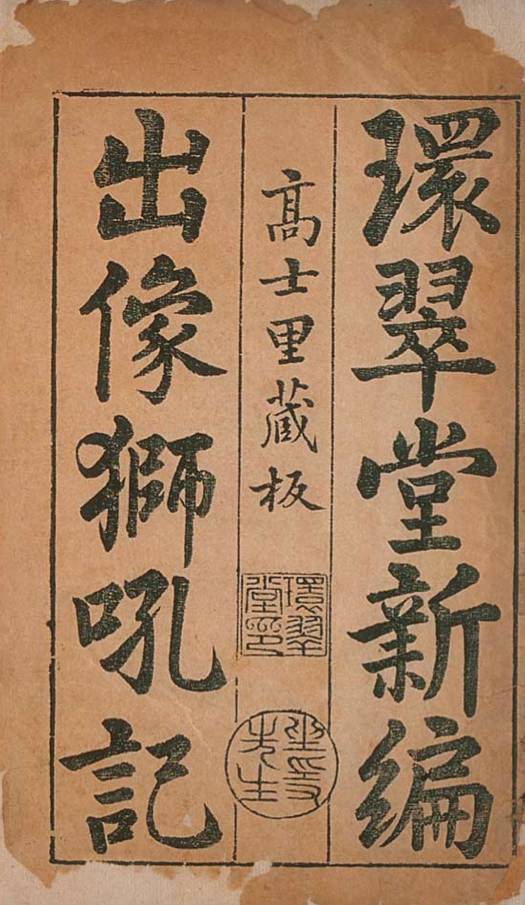 環翠堂新編
髙士里蔵板
環翠堂印
坐隱先生
出像獅吼記